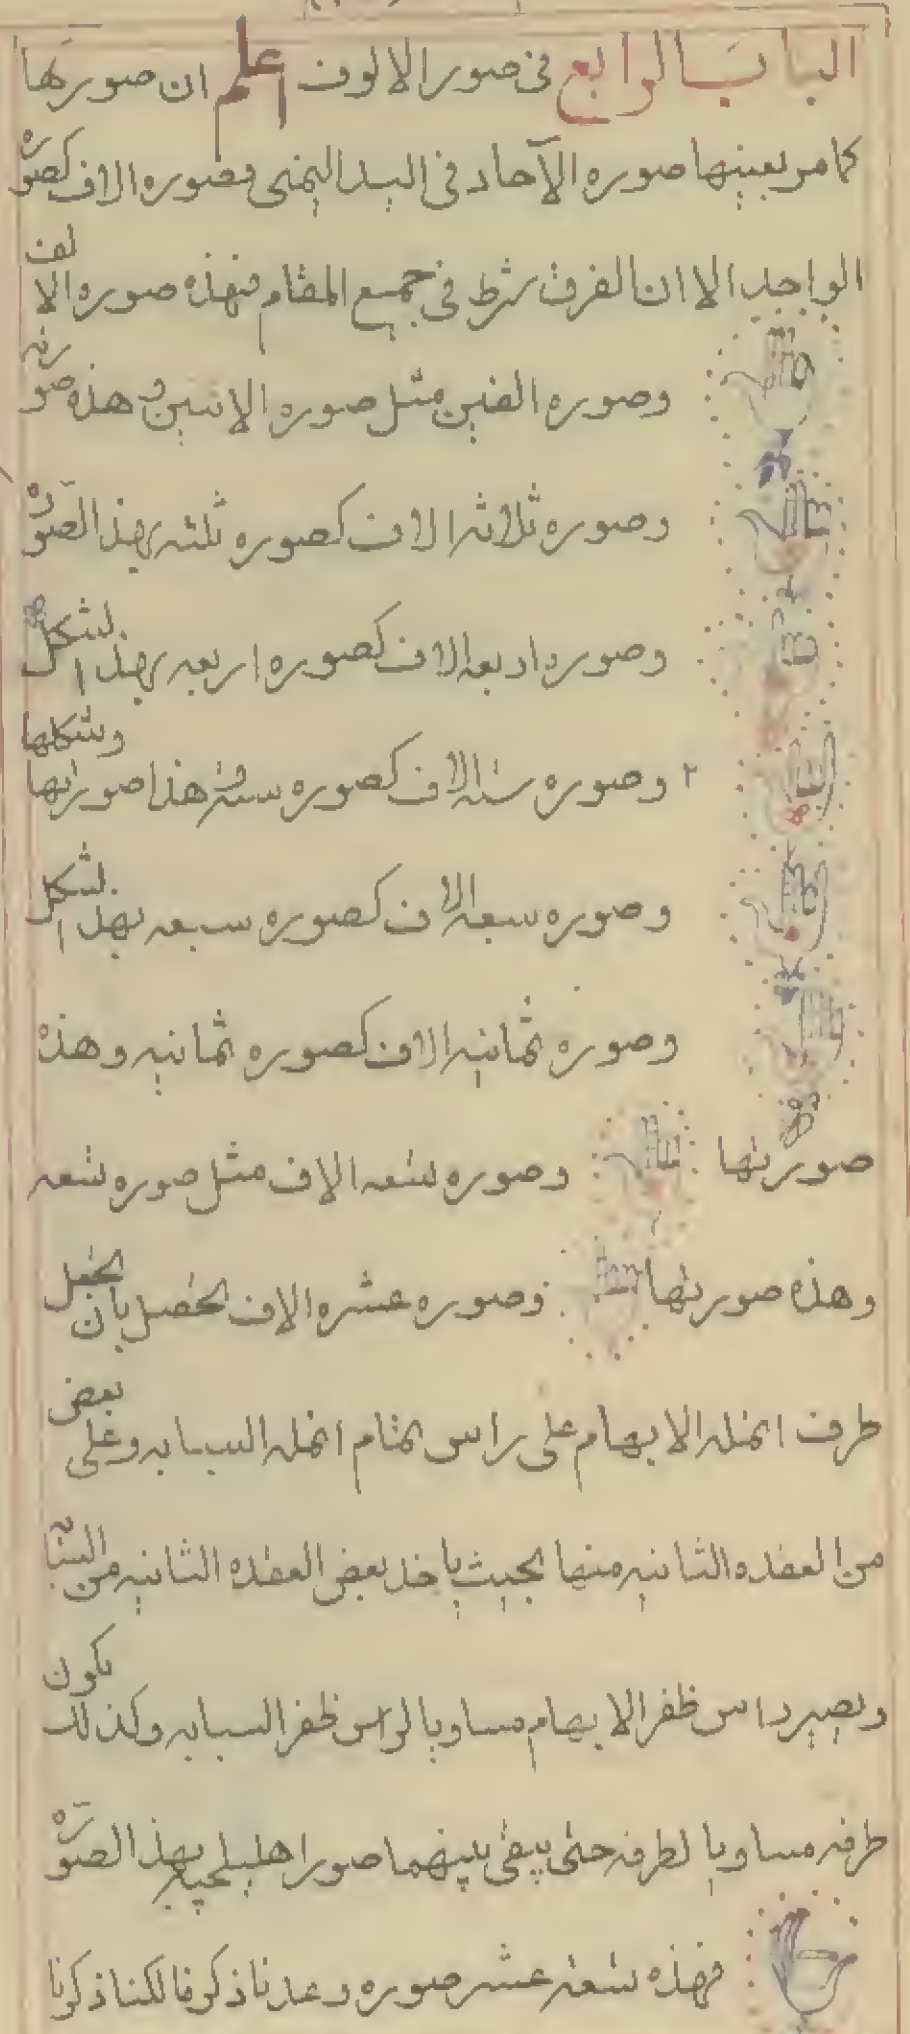 الباب الرابع في صور الالوف اعلم ان صورتها
كما مر بعينها صوره الآحاد في اليد اليمنى فصوره الالف كصوره
الواحد الا ان الفرق شرط في جميع المقام فهذه صوره الالف
وصوره الفين مثل صوره الاثنين وهذه صورته
وصوره ثلاثه الاف كصوره ثلثه بهذا الصوره
وصوره اربعه الاف كصوره اربعه بهذا الشكل
٢ وصوره سته الاف كصوره سته وهذا صورتها وشكلها
وصوره سبعه الاف كصوره سبعه بهذا الشكل
وصوره ثمانيه الاف كصوره ثمانيه وهذه
صورتها وصوره تسعه الاف مثل صوره تسعه
وهذه صورتها وصوره عشره الاف تحصل بان
طرف انمله الابهام على راس تمام انمله السبابه وعلى بعض
من العقده الثانيه منها بحيث ياخذ بعض العقده الثانيه من
ويصير راس ظفر الابهام مساويا لراس ظفر السبابه وكذلك يكون
طرفه مساويا لطرفه حتى يبقى بينهما بهذا الصوره
فهذه تسعه عشر صوره ذكرنا